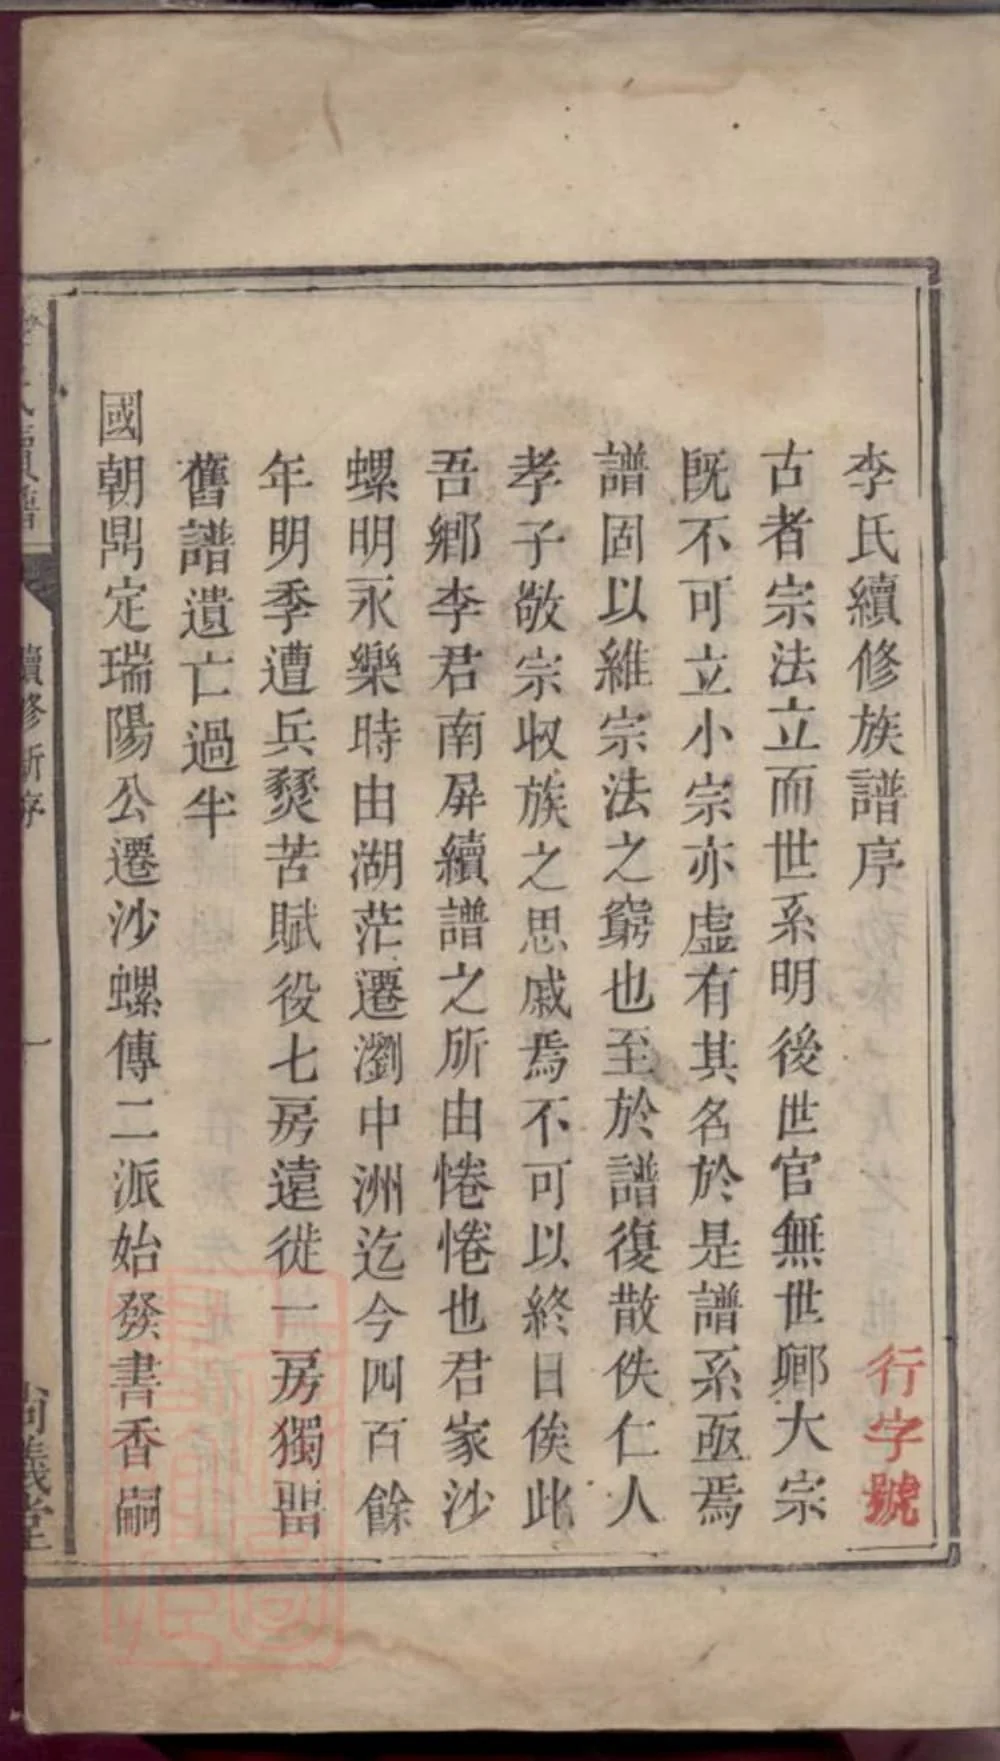 李氏續修族譜序
行字號
古者宗法立而世系明後世官無世卿大宗
既不可立小宗亦虛有其名於是譜系亟焉
譜固以維宗法之窮也至於譜復散佚仁人
孝子敬宗收族之思戚焉不可以終日俟此
吾鄉李君南屏續譜之所由惓惓也君家沙
螺明永樂時由湖茫遷瀏中洲迄今四百餘
年明季遭兵燹苦賦役七房遠徙一房獨畱
舊譜遺亡過半
國朝鼎定瑞陽公遷沙螺傳二派始發書香嗣
續修新序
一
尚義堂